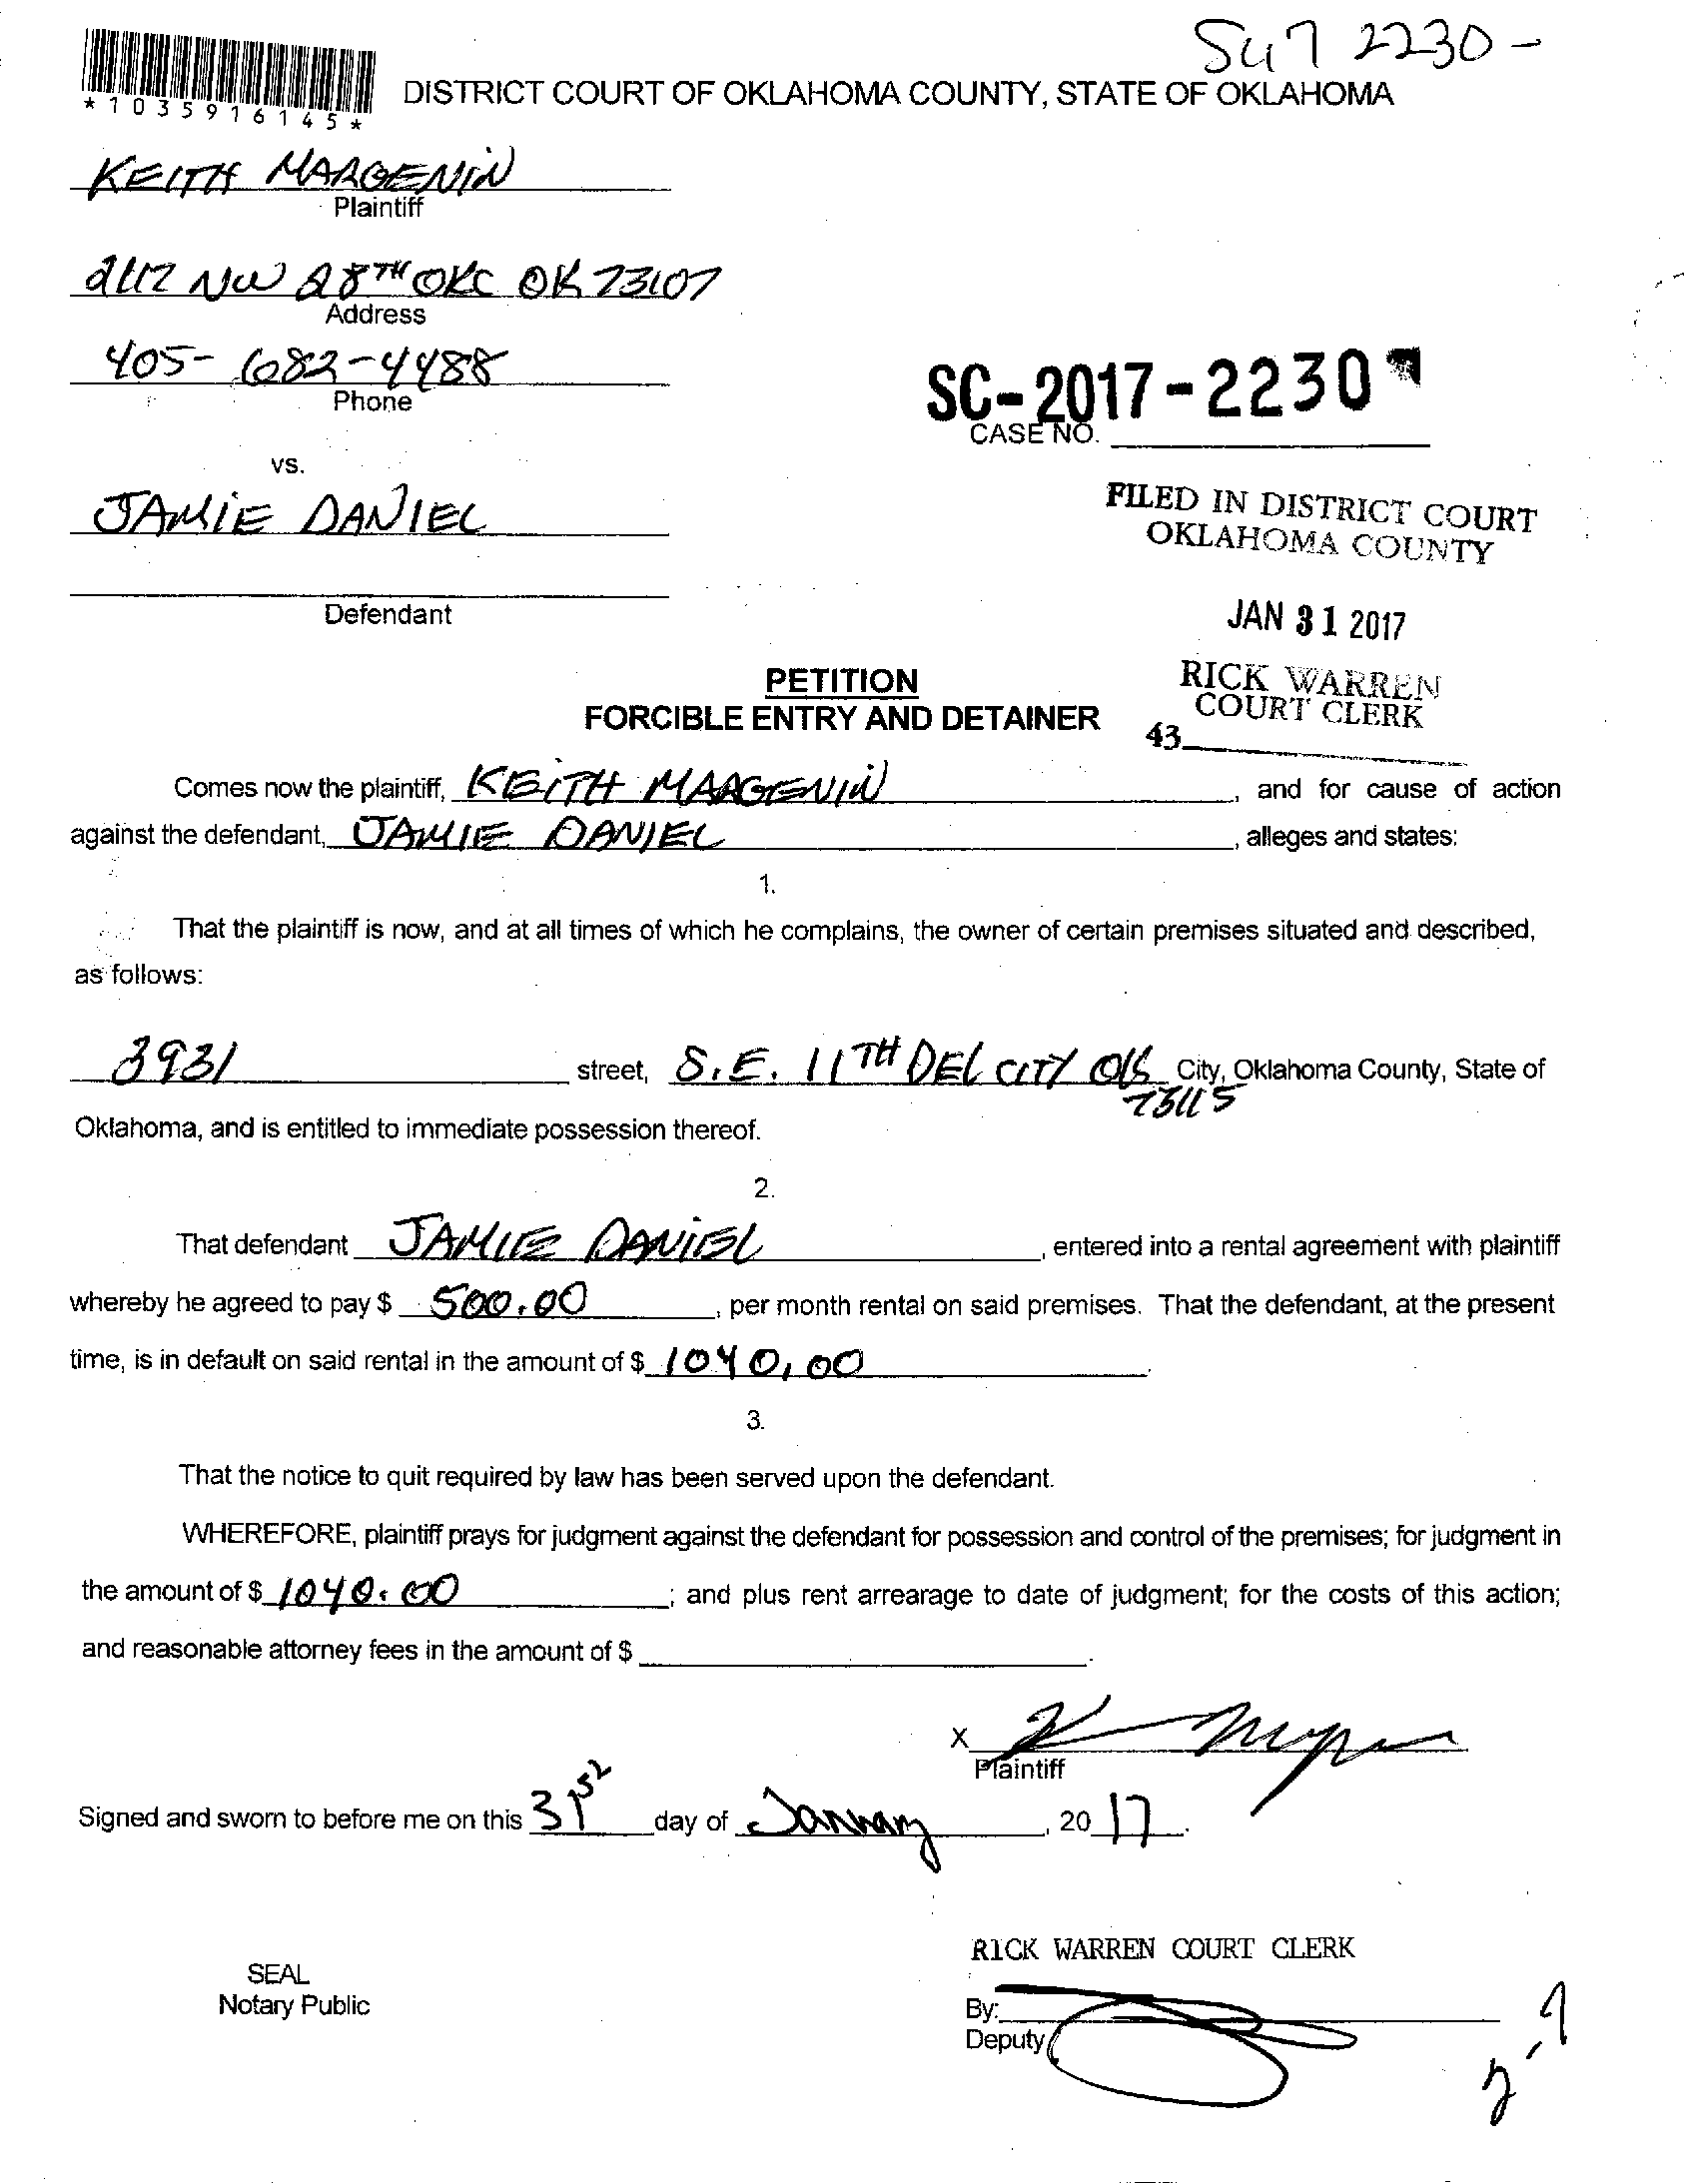 SC17 2230-
*1035916145*
DISTRICT COURT OF OKLAHOMA COUNTY, STATE OF OKLAHOMA
KEITH MARGENIN
Plaintiff
2112 NW 28TH OKC OK 73107
Address
405-682-4488
Phone
SC-2017-2230
CASE NO.
vs.
JAMIE DANIEL
FILED IN DISTRICT COURT
OKLAHOMA COUNTY
Defendant
JAN 31 2017
PETITION
RICK WARREN
COURT CLERK
FORCIBLE ENTRY AND DETAINER
43
Comes now the plaintiff, KEITH MARGENIN, and for cause of action
against the defendant, JAMIE DANIEL, alleges and states:
1.
That the plaintiff is now, and at all times of which he complains, the owner of certain premises situated and described,
as follows:
3931 street, S.E. 11TH DEL CITY OK City, Oklahoma County, State of
73115
Oklahoma, and is entitled to immediate possession thereof.
2.
That defendant JAMIE DANIEL, entered into a rental agreement with plaintiff
whereby he agreed to pay $ 500.00, per month rental on said premises. That the defendant, at the present
time, is in default on said rental in the amount of $ 1040.00.
3.
That the notice to quit required by law has been served upon the defendant.
WHEREFORE, plaintiff prays for judgment against the defendant for possession and control of the premises; for judgment in
the amount of $ 1040.00; and plus rent arrearage to date of judgment; for the costs of this action;
and reasonable attorney fees in the amount of $.
X
Plaintiff
Signed and sworn to before me on this 31st day of January, 2017.
RICK WARREN COURT CLERK
SEAL
Notary Public
By:
Deputy